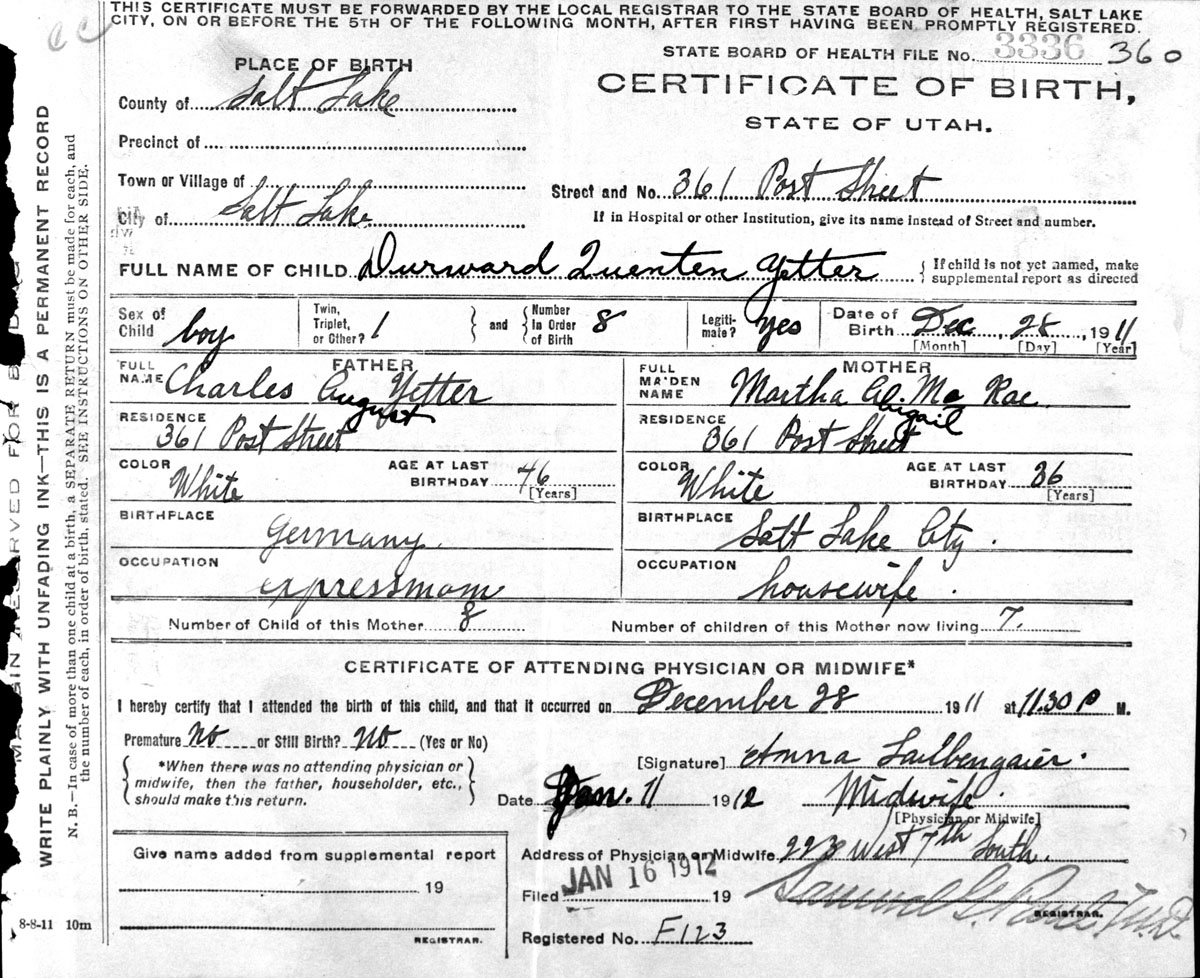 THIS CERTIFICATE MUST BE FORWARDED BY THE LOCAL REGISTRAR TO THE STATE BOARD OF HEALTH, SALT LAKE
CITY, ON OR BEFORE THE 5TH OF THE FOLLOWING MONTH, AFTER FIRST HAVING BEEN PROMPTLY REGISTERED.
STATE BOARD OF HEALTH FILE No. 3336 360
PLACE OF BIRTH
CERTIFICATE OF BIRTH,
STATE OF UTAH.
County of Salt Lake
Precinct of
Town or Village of
Street and No. 361 Post Street
City of Salt Lake
If in Hospital or other Institution, give its name instead of Street and number.
FULL NAME OF CHILD Durward Quenten Yetter { If child is not yet named, make supplemental report as directed
Sex of Child boy Twin, Triplet, or Other? 1 } and { Number In Order of Birth 8 Legiti- mate? Yes Date of Birth Dec, 28, 1911
[Month] [Day] [Year]
FATHER
FULL NAME Charles August Yetter
RESIDENCE
361 Post Street
COLOR White AGE AT LAST BIRTHDAY 46
[Years]
BIRTHPLACE
Germany
OCCUPATION
expressman
MOTHER
FULL MAIDEN NAME Martha Abigail Mc Rae
RESIDENCE
361 Post Street
COLOR White AGE AT LAST BIRTHDAY 36
[Years]
BIRTHPLACE
Salt Lake City.
OCCUPATION
housewife.
Number of Child of this Mother 8 Number of children of this Mother now living 7.
CERTIFICATE OF ATTENDING PHYSICIAN OR MIDWIFE*
I hereby certify that I attended the birth of this child, and that it occurred on December 28 1911 at 11.30 P M.
Premature No or Still Birth? No (Yes or No)
{ *When there was no attending physician or
midwife, then the father, householder, etc.,
should make this return. }
[Signature] Anna
Date Jan. 11 1912 Midwife.
[Physician or Midwife]
Address of Physician or Midwife. 223 West 7th South.
Give name added from supplemental report
19
REGISTRAR.
Filed JAN 16 1912 19
Samuel G. Paul, M.D.
REGISTRAR.
Registered No. F123
8-8-11 10m
MARGIN RESERVED FOR
WRITE PLAINLY WITH UNFADING INK—THIS IS A PERMANENT RECORD
N. B.—In case of more than one child at a birth, a SEPARATE RETURN must be made for each, and
the number of each, in order of birth, stated. SEE INSTRUCTIONS ON OTHER SIDE.